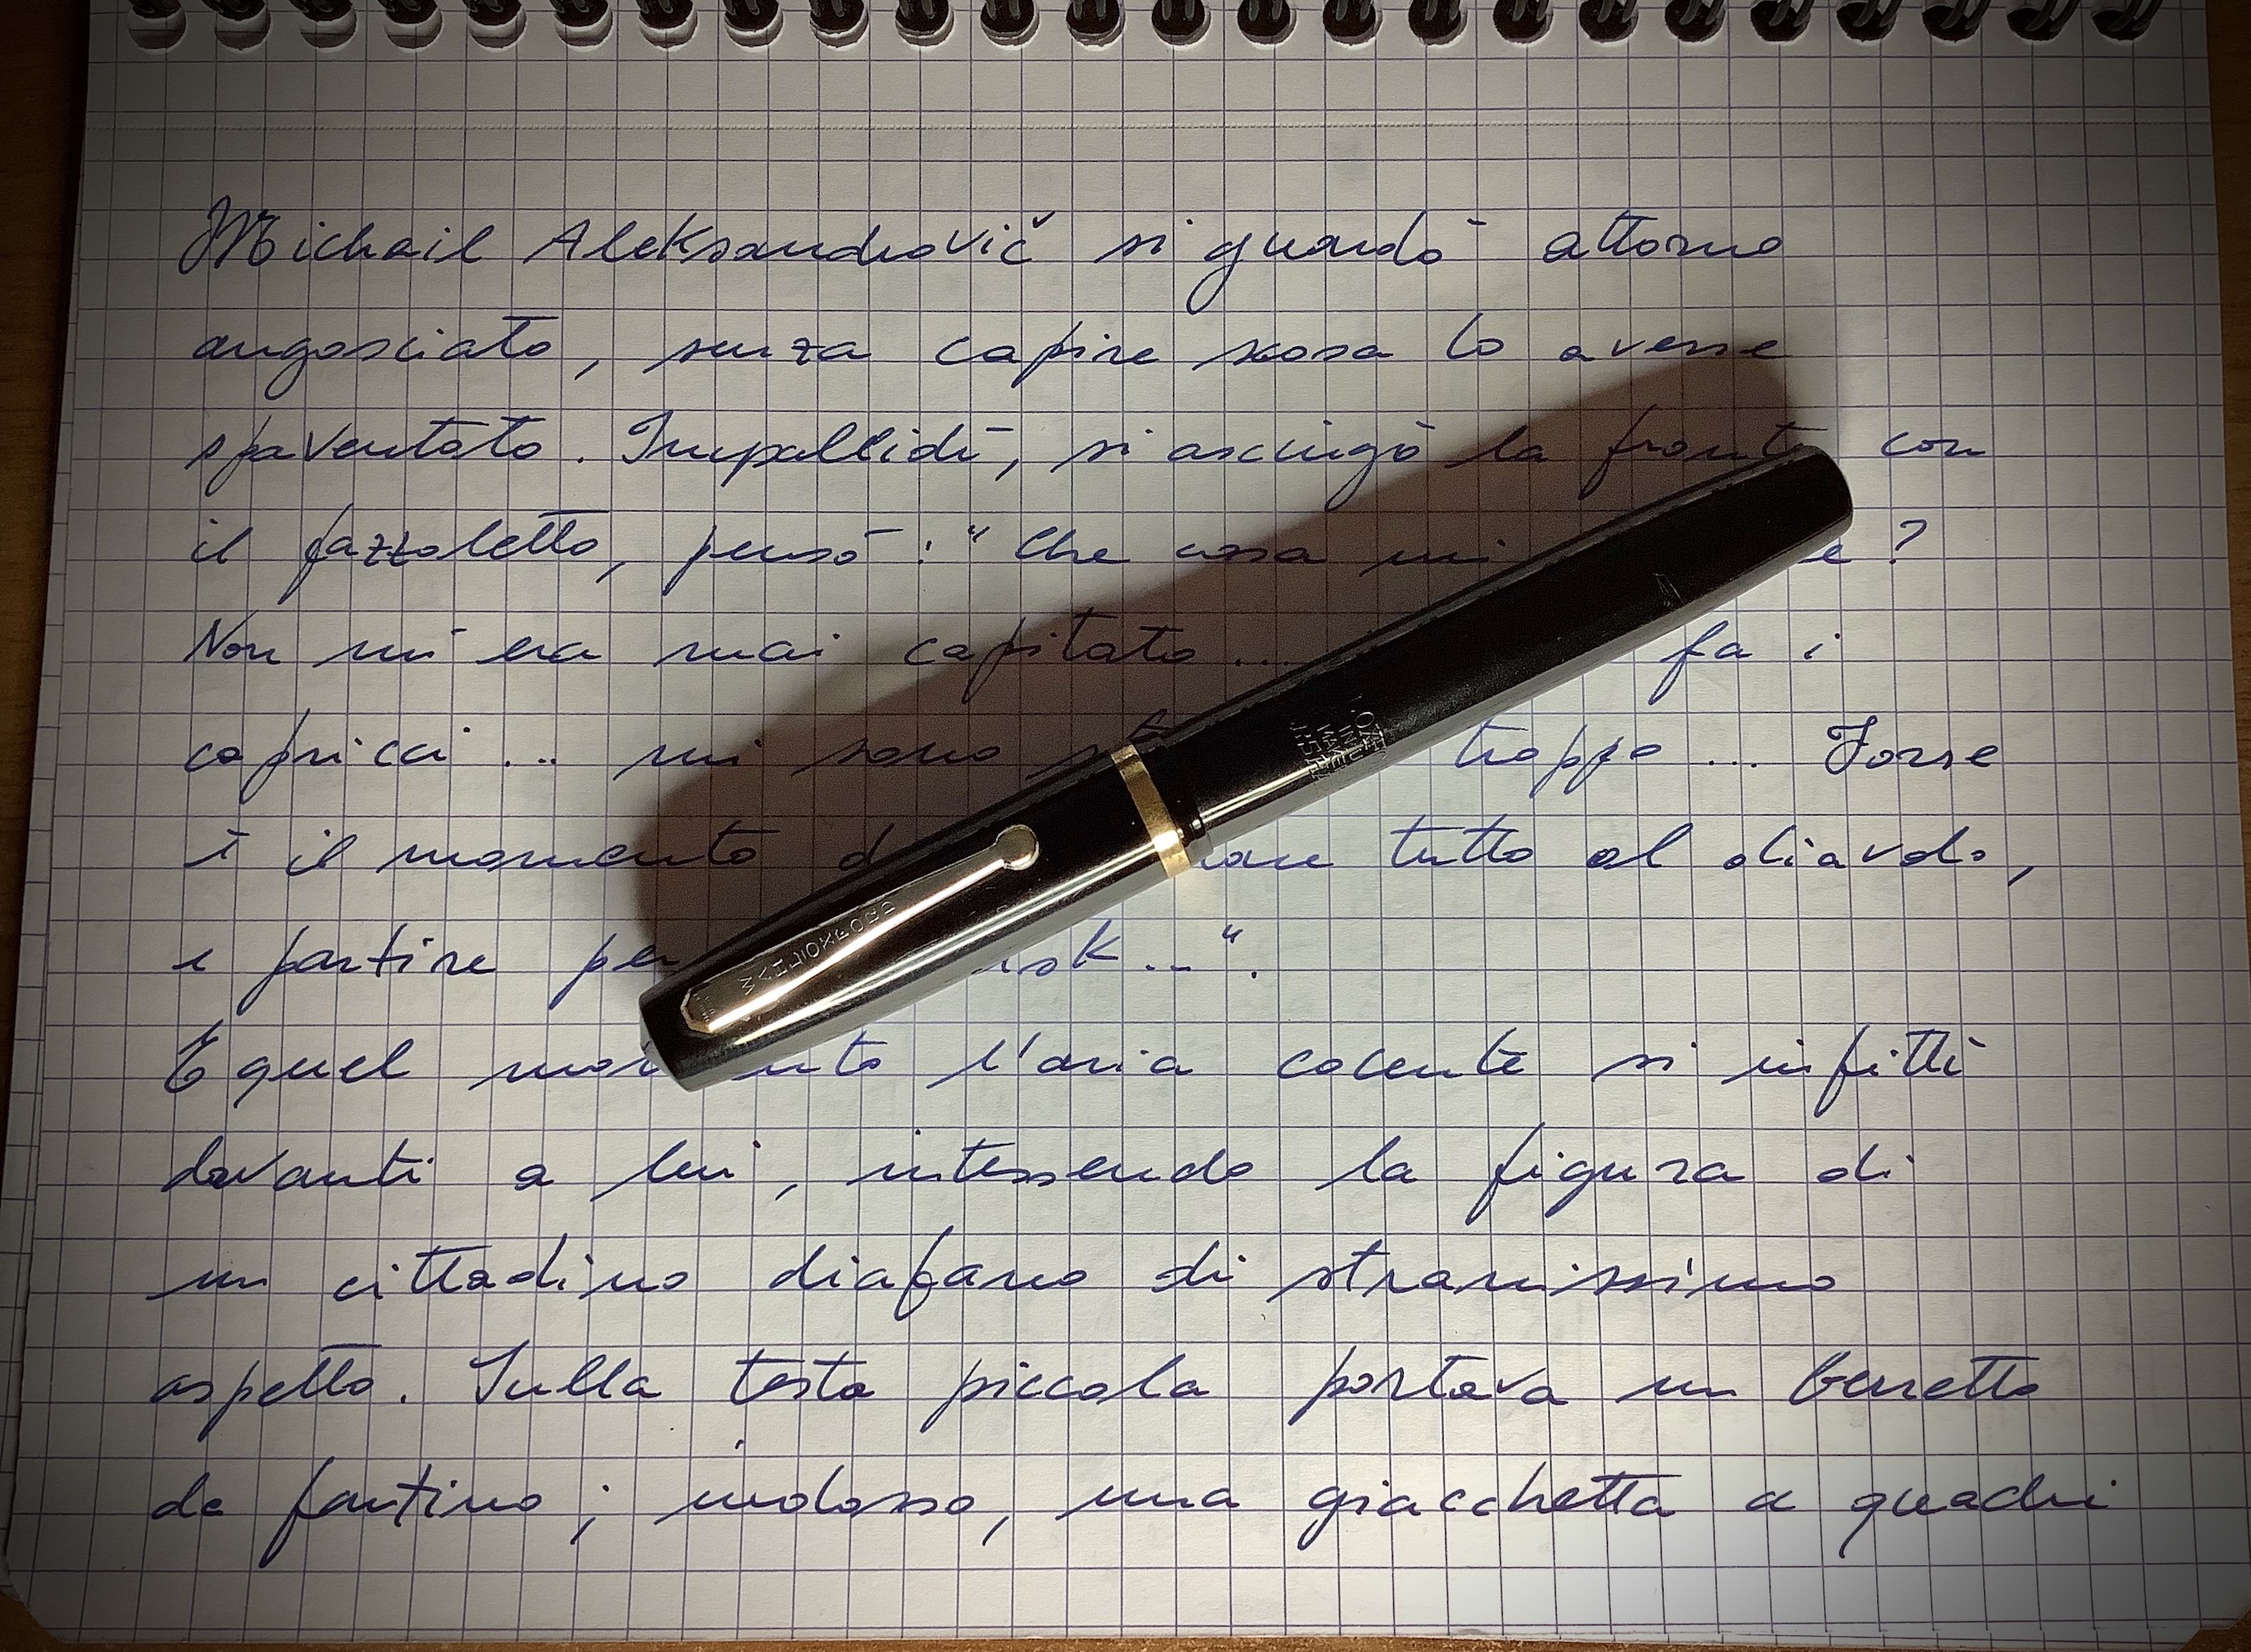 Michail Aleksandrovič si guardò attorno
angosciato, senza capire scosa lo avesse
spaventato. Impallidì, si asciugò la fronte con
il fazzoletto, pensò: "Che cosa mi e?
Non mi era mai capitato... fa i
capricci... mi sono troppo... Forse
è il momento tutto al diavolo,
e partire per sk...".
E quel momento l'aria cocente si infittì
davanti a lui, intessendo la figura di
un cittadino diafano di stranissimo
aspetto. Sulla testa piccola portava un berretto
da fantino; indosso, una giacchetta a quadri